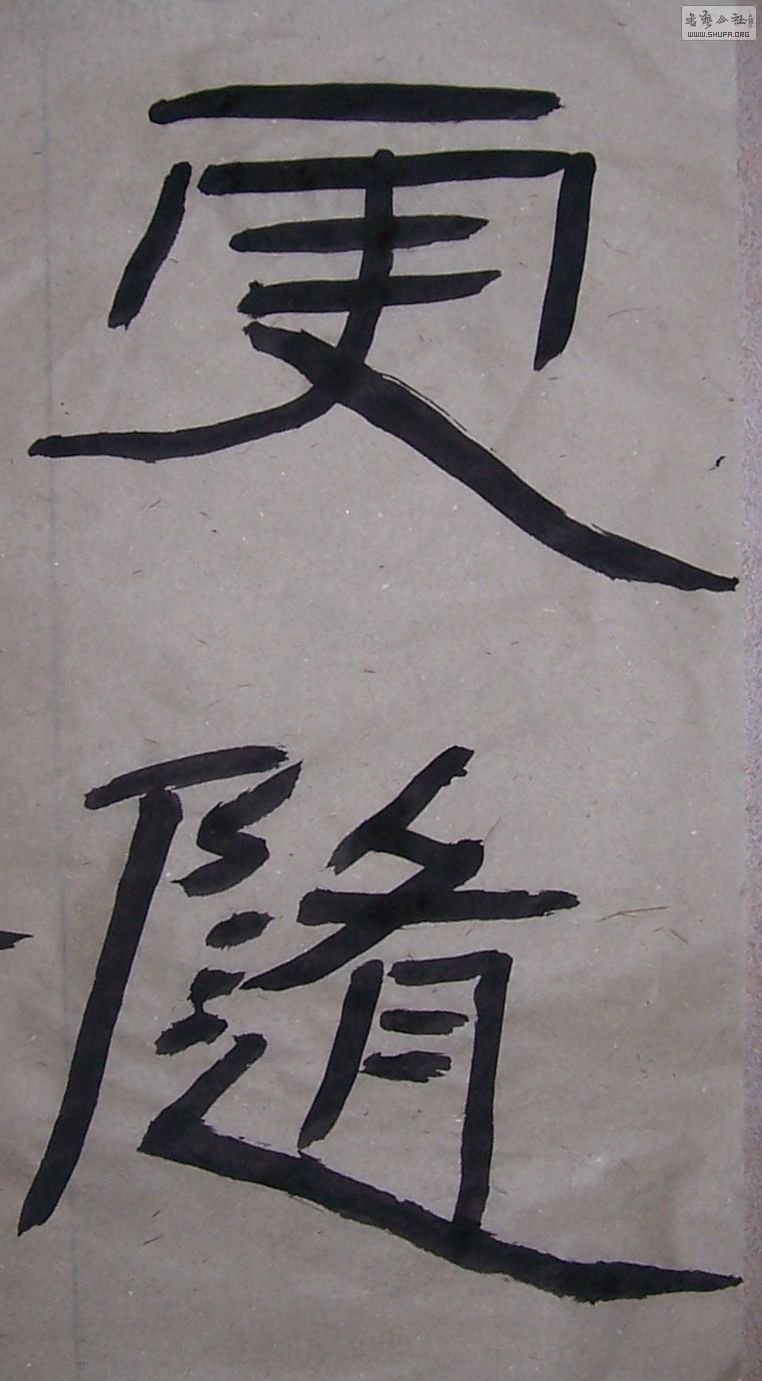 書藝公社
WWW.SHUFA.ORG
更
随